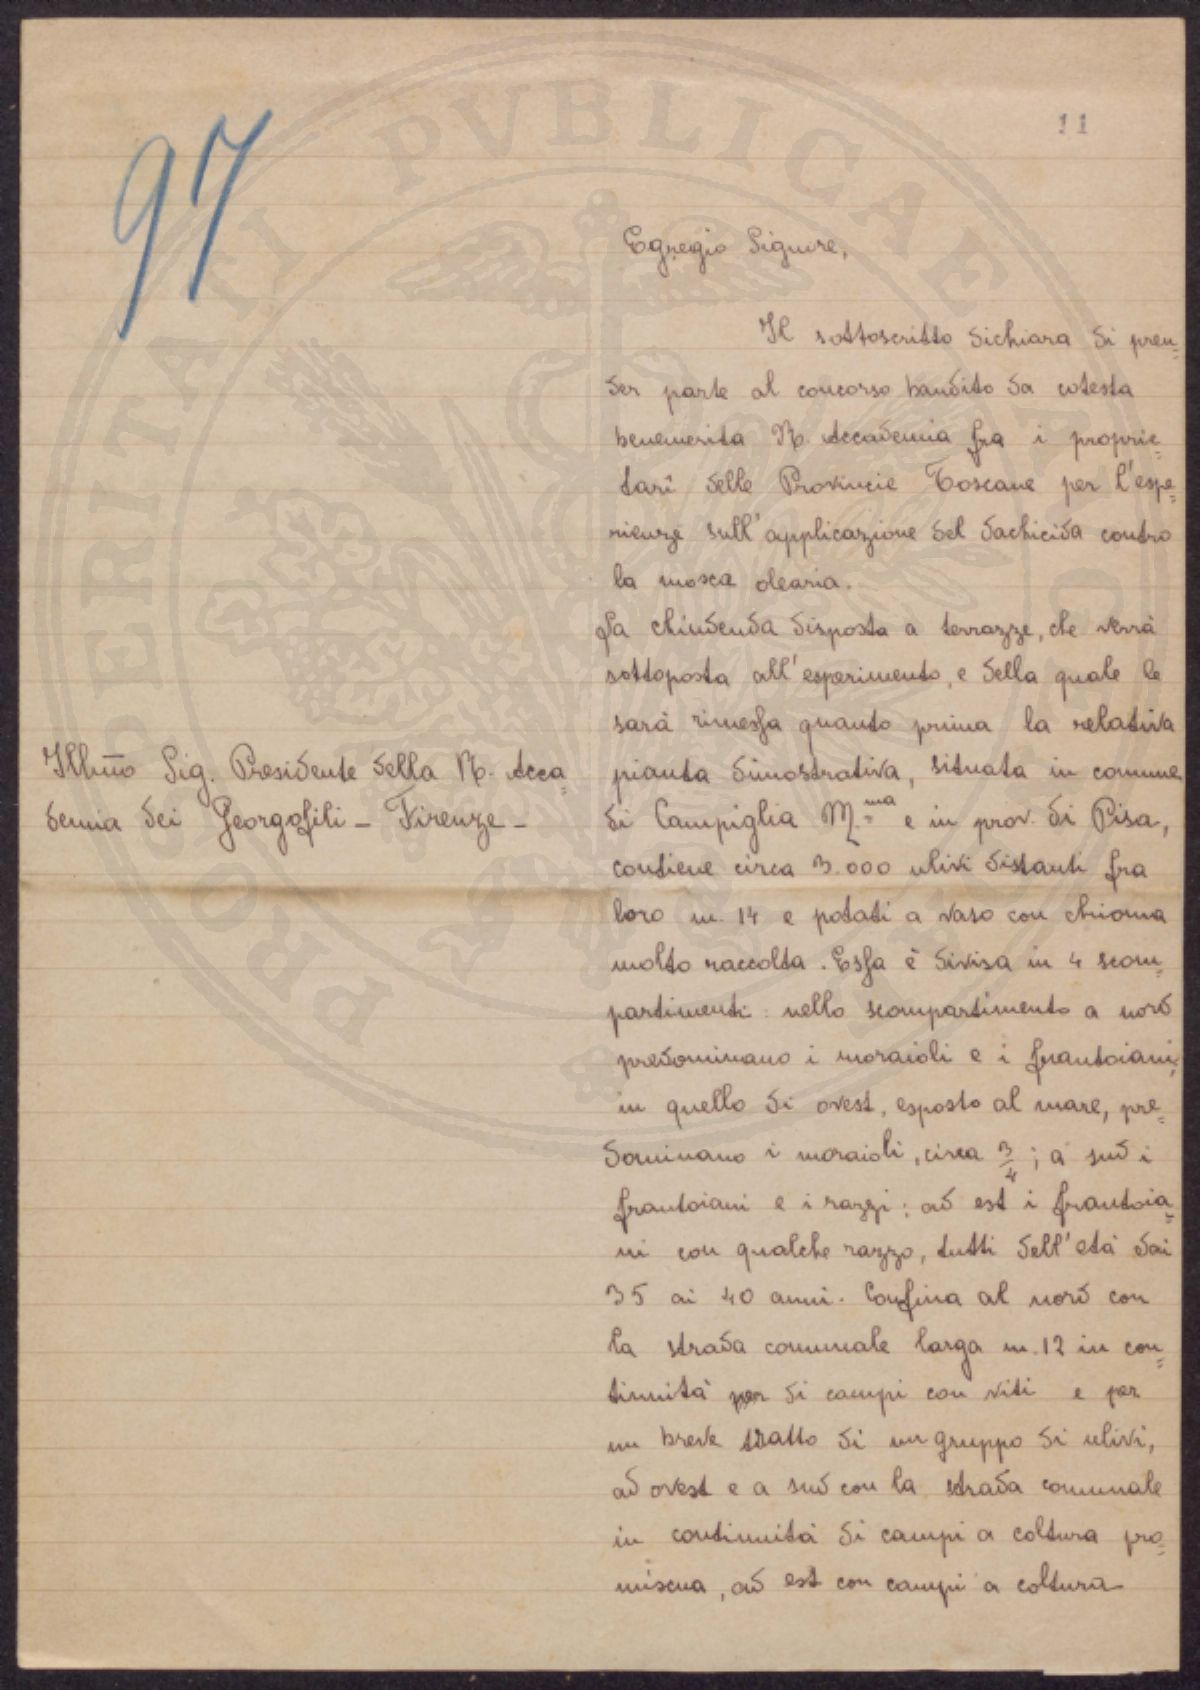 97
11
Egregio Signore,
Il sottoscritto dichiara di pren=
der parte al concorso bandito da cotesta
benemerita R. Accademia fra i proprie=
tarî delle Provincie Toscane per l'espe=
rienze sull'applicazione del dachicida contro
la mosca olearia.
La chiudenda disposta a terrazze, che verrà
sottoposta all'esperimento, e della quale le
sarà rimessa quanto prima la relativa
pianta dimostrativa, situata in comune
di Campiglia M.ma e in prov. di Pisa,
contiene circa 3.000 ulivi distanti fra
loro m. 14 e potati a vaso con chioma
molto raccolta. Essa è divisa in 4 scom=
partimenti: nello scompartimento a nord
predominano i moraioli e i frantoiani;
in quello di ovest, esposto al mare, pre=
dominano i moraioli, circa 3/4; a sud i
frantoiani e i razzi; ad est i frantoia=
ni con qualche razzo, tutti dell'età dai
35 ai 40 anni. Confina al nord con
la strada comunale larga m. 12 in con=
tinuità per di campi con viti e per
un breve tratto di un gruppo di ulivi,
ad ovest e a sud con la strada comunale
in continuità di campi a coltura pro=
miscua, ad est con campi a coltura
Illmo Sig. Presidente della R. Acca=
demia dei Georgofili - Firenze -
PROSPERITATI PVBLICAE